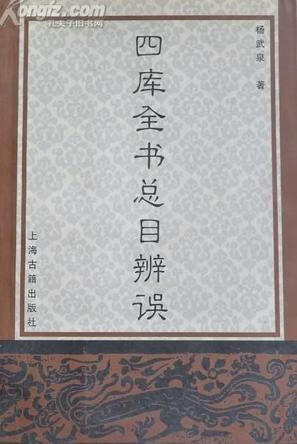 Kongfz.com
孔夫子旧书网
杨武泉 著
四库全书总目辨误
上海古籍出版社